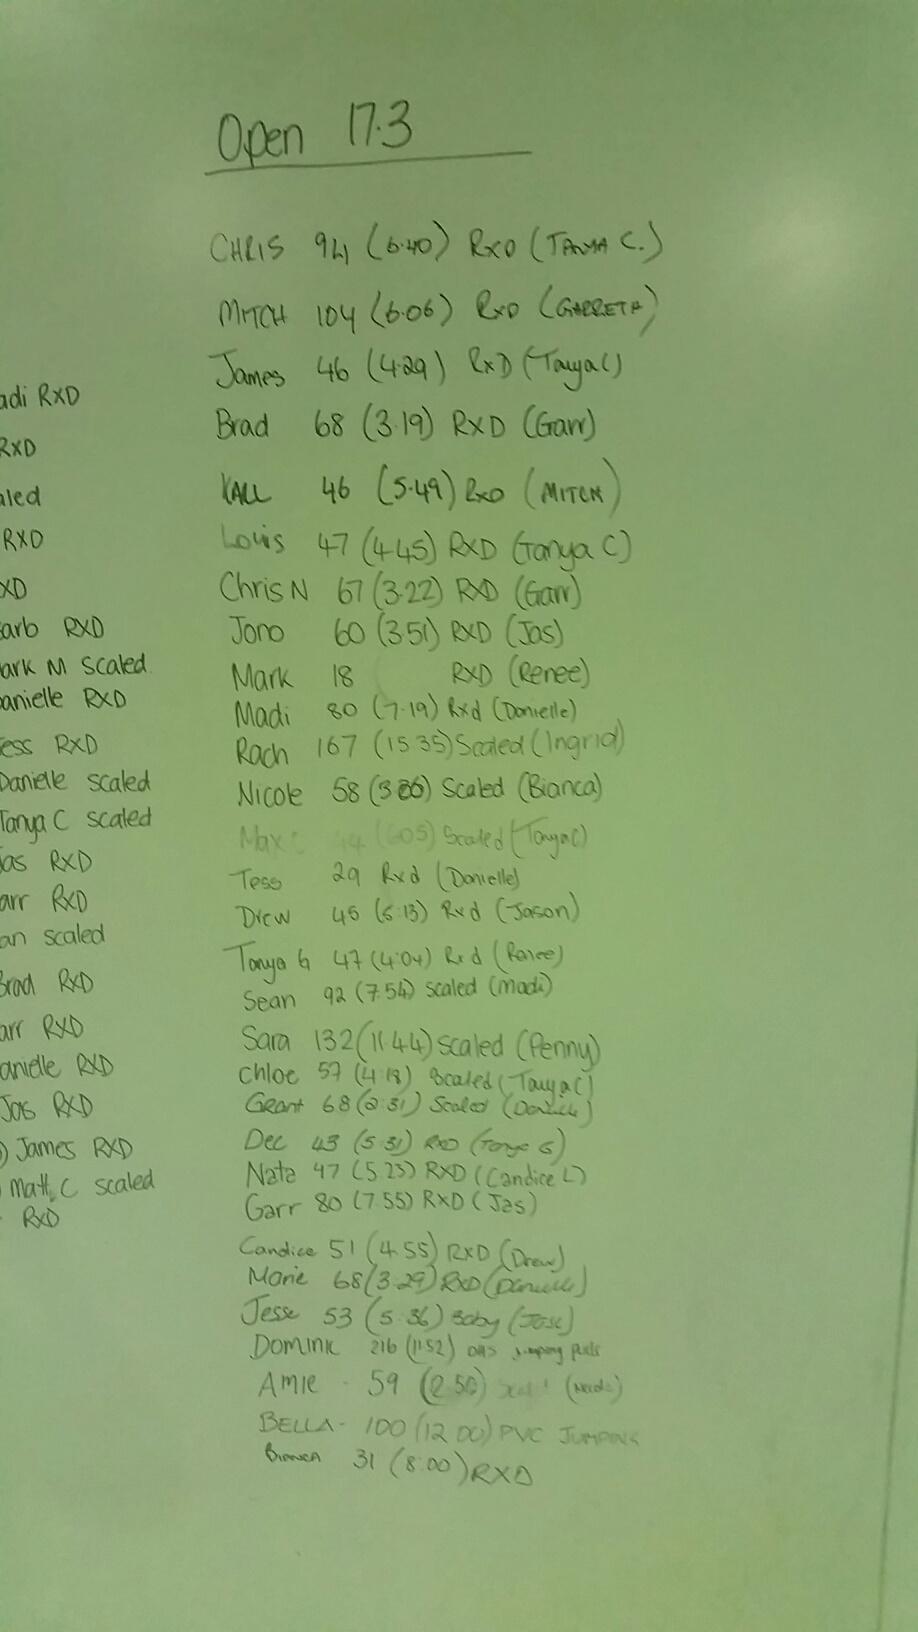 Open 17.3
CHRIS 94 (6.40) RXD (TANYA C.)
MITCH 104 (6.06) RXD (GARRETH)
James 46 (4.29) RXD (Tanya C)
Brad 68 (3.19) RXD (Garr)
KALL 46 (5.49) RXD (MITCH)
Louis 47 (4.45) RXD (Tanya C)
Chris N 67 (3.22) RXD (Garr)
Jono 60 (3.51) RXD (Jas)
Mark 18 RXD (Renee)
Madi 80 (7.19) Rxd (Danielle)
Rach 167 (15 35) Scaled (Ingrid)
Nicole 58 Scaled (Bianca)
Max C Scaled (Tanya C)
Tess 29 Rxd (Danielle)
Drew 45 Rxd (Jason)
Tanya G 47 (4.04) Rxd (Renee)
Sean 92 (7.54) scaled (Madi)
Sara 132 (11.44) scaled (Penny)
Chloe 57 (4.18) Scaled (Tanya C)
Grant 68 (2.31) Scaled (Danielle)
Dec 43 (5 31) RXD (Tanya G)
Nata 47 (5.23) RXD (Candice L)
Garr 80 (7.55) RXD (Jas)
Candice 51 (4.55) RXD (Drew)
Marie 68 (3.29) RXD (Danielle)
Jesse 53 (5.36) Baby
Dominic 216 (11.52) jumping pulls
Amie - 59 (2.50)
BELLA - 100 (12 00) PVC JUMPING
Bianca 31 (8.00) RXD
adi RXD
RXD
aled
RXD
XD
arb RXD
ark M scaled
anielle RXD
ess RXD
Danielle scaled
Tanya C scaled
as RXD
arr RXD
an scaled
Brad RXD
arr RXD
anielle RXD
Jas RXD
) James RXD
Matt C scaled
RXD